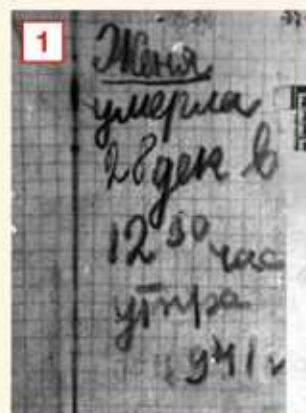 1
Женя
умерла
28 дек в
12 30 час
утра
1941 г